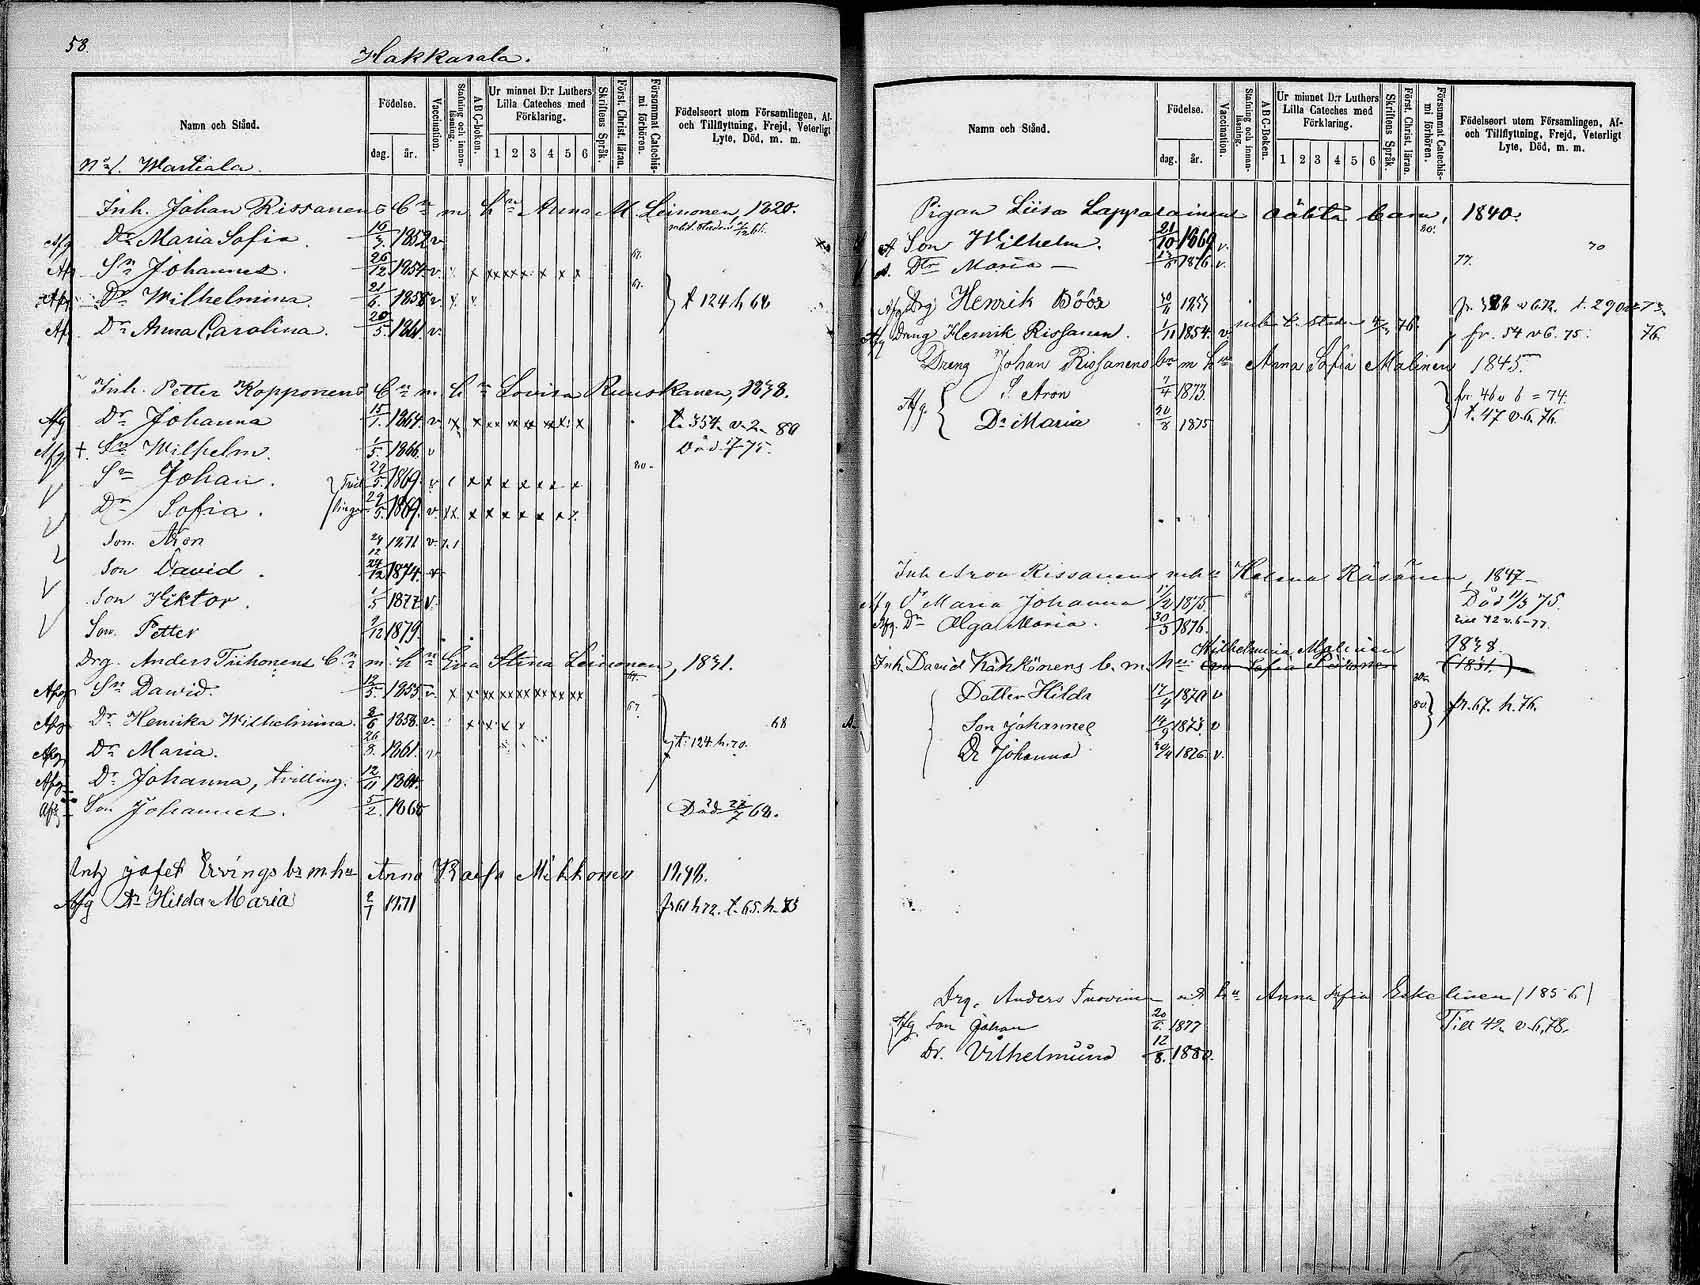 58.
Hakkarala.
Namn och Stånd.
Födelse.
dag.
år.
Vaccination.
Stafning och innan-läsning.
ABC-boken.
Ur minnet D:r Luthers Lilla Cateches med Förklaring.
1 2 3 4 5 6
Skriftens Språk.
Först. Christ. läran.
Försummat Catechismi förhören.
Födelseort utom Församlingen, Af- och Tillflyttning, Frejd, Veterligt Lyte, Död, m. m.
N:o 1. Martiala.
Inh. Johan Rissanens Bn m. hu Anna M. Leinonen, 1820.
Afg Dr Maria Sofia. 16/3 1852 v.
Afg Sn Johannes. 26/12 1854 v.
Afg Dr Wilhelmina 21/6 1858 v t 124 h 68
Afg Dr Anna Carolina. 20/5 1861 v.
Inh. Petter Kopponens Bn m hu Lovisa Ruuskanen, 1838.
Afg Dr Johanna 15/1 1864 v t. 354. v. 2. 80
Afg + Sn Wilhelm. 1/5 1866 v Död 75.
Sn Johan. 29/5 1869 v 80.
Dr Sofia. 29/5 1869 v.
Son Aron 29/12 1871 v.
Son David. 24/12 1874
Son Viktor. 1/5 1877 v.
Son Petter 9/12 1879.
Drg. Anders Tiihonens Bn m. hu Stina Leinonen, 1831.
Afg Sn David. 1855 v.
Afg Dr Henrika Wilhelmina. 8/6 1858 v. 68
Afg Dr Maria. 26/8 1861 v t. 124. h. 70.
Afg Dr Johanna, tvilling. 12/11 1864.
Afg Son Johannes. 5/2 1868 Död 68.
Inh Jafet Ervings br m hu Anna Kaisa Mikkonen 1848.
Afg Dr Hilda Maria 2/7 1871 fr 61 h 72. t. 65. h. 73
Namn och Stånd.
Födelse.
dag.
år.
Vaccination.
Stafning och innan-läsning.
ABC-Boken.
Ur minnet D:r Luthers Lilla Cateches med Förklaring.
1 2 3 4 5 6
Skriftens Språk.
Först. Christ. läran.
Försummat Catechismi förhören.
Födelseort utom Församlingen, Af- och Tillflyttning, Frejd, Veterligt Lyte, Död, m. m.
Pigan Liisa Lappalainens oäkta barn, 1840.
Son Wilhelm. 21/10 1869 v. 80.
Dtr Maria 1876 v. 77.
Afg Drg Henrik Böös 1853
Afg Dreng Henrik Rissanen. 1/11 1854. v. 76. fr. 54 v 6. 75. 76.
Dreng Johan Rissanens br m hu Anna Sofia Malinen 1845.
Afg. S. Aron 7/4 1873. fr. 46 v 6 = 74.
Dr Maria 30/8 1875 t. 47 v. 6. 76.
Inh Aron Rissanens m hu Helena Räsänen, 1847
Afg Dr Maria Johanna 1875. Död 11/3 75.
Afg. Dr Olga Maria. 30/3 1876. till 72 v. 6-77.
Wilhelmina Malinen 1838.
Inh. David Kähkönens b. m. hu Sofia (1831)
Dotter Hilda 17/4 1870 v 80. fr. 67. h. 76.
Son Johannes 14/9 1873 v
Dr Johanna 1876. v.
Drg. Anders Tuovinen hu Anna Sofia Eskelinen (1856)
Afg Son Johan 1877 Till 42 v. 6. 78.
Dr. Vilhelmiina 12/8 1880.